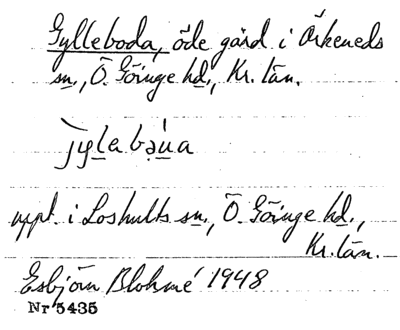 Gylleboda, öde gård i Örkeneds
sn., Ö. Göinge hd., Kr. län.
uppt. i Loshults sn., Ö. Göinge hd.,
Kr. län.
Esbjörn Blohmé 1948
Nr 5435